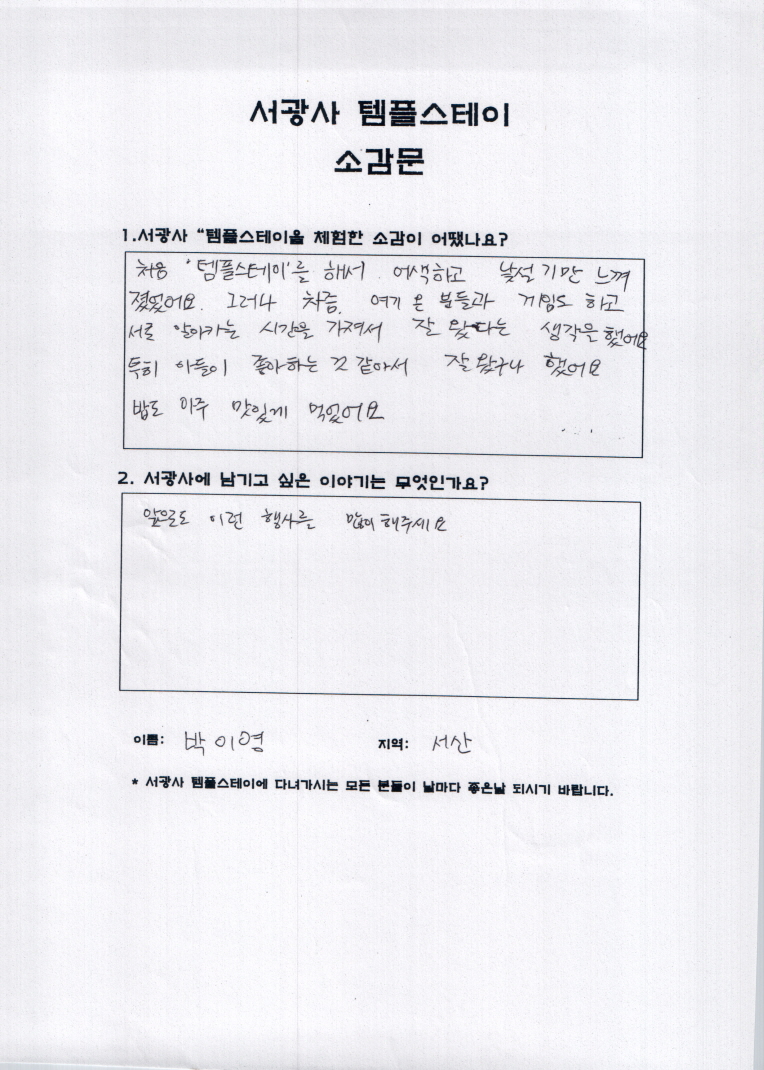 서광사 템플스테이
소감문
1.서광사 “템플스테이을 체험한 소감이 어땠나요?
처음 '템플스테이'를 해서 어색하고 낯설기만 느껴
졌었어요. 그러나 처음, 여기 온 분들과 게임도 하고
서로 알아가는 시간을 가져서 잘 왔다는 생각을 했어요
특히 아들이 좋아하는 것 같아서 잘 왔구나 했어요
밥도 아주 맛있게 먹었어요
2. 서광사에 남기고 싶은 이야기는 무엇인가요?
앞으로도 이런 행사를 많이 해주세요
이름: 박이영 지역: 서산
* 서광사 템플스테이에 다녀가시는 모든 분들이 날마다 좋은날 되시기 바랍니다.